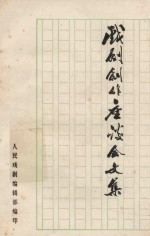 戏剧创作座谈会文集
人民戏剧编辑部编印